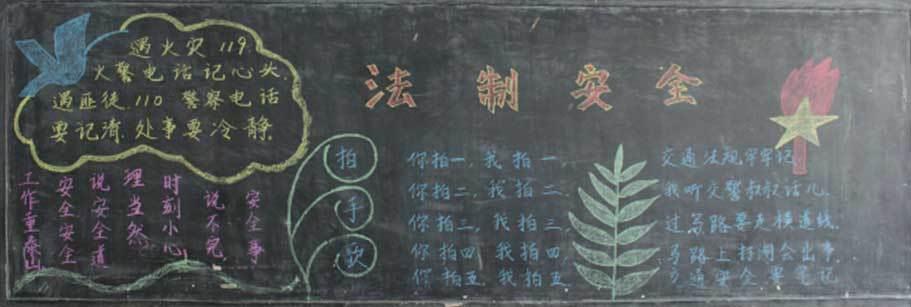 遇火灾 119
火警电话记心头.
遇匪徒.110 警察电话
要记清.处事要冷静.
法制安全
安全事
说不完
时刻小心
理当然
说安全道
安全安全
工作重
拍手歌
你拍一,我拍一, 交通法规牢牢记.
你拍二,我拍二 我听交警叔叔话儿.
你拍三,我拍三, 过马路要走横道线.
你拍四,我拍四, 马路上打闹会出事.
你拍五,我拍五 交通安全要笔记